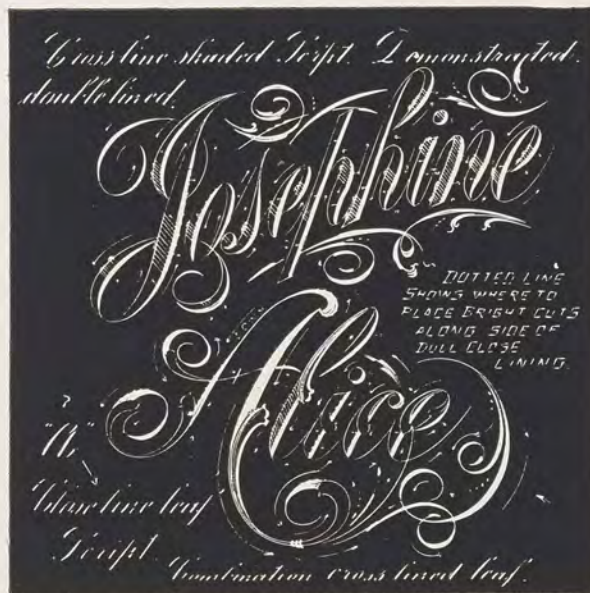 Cross line shaded Script. Demonstrated.
double lined.
Josephine
DOTTED LINE
SHOWS WHERE TO
PLACE BRIGHT CUTS
ALONG SIDE OF
DULL CLOSE
LINING.
Alice
"A"
Close line leaf
Script.
Combination cross lined leaf.